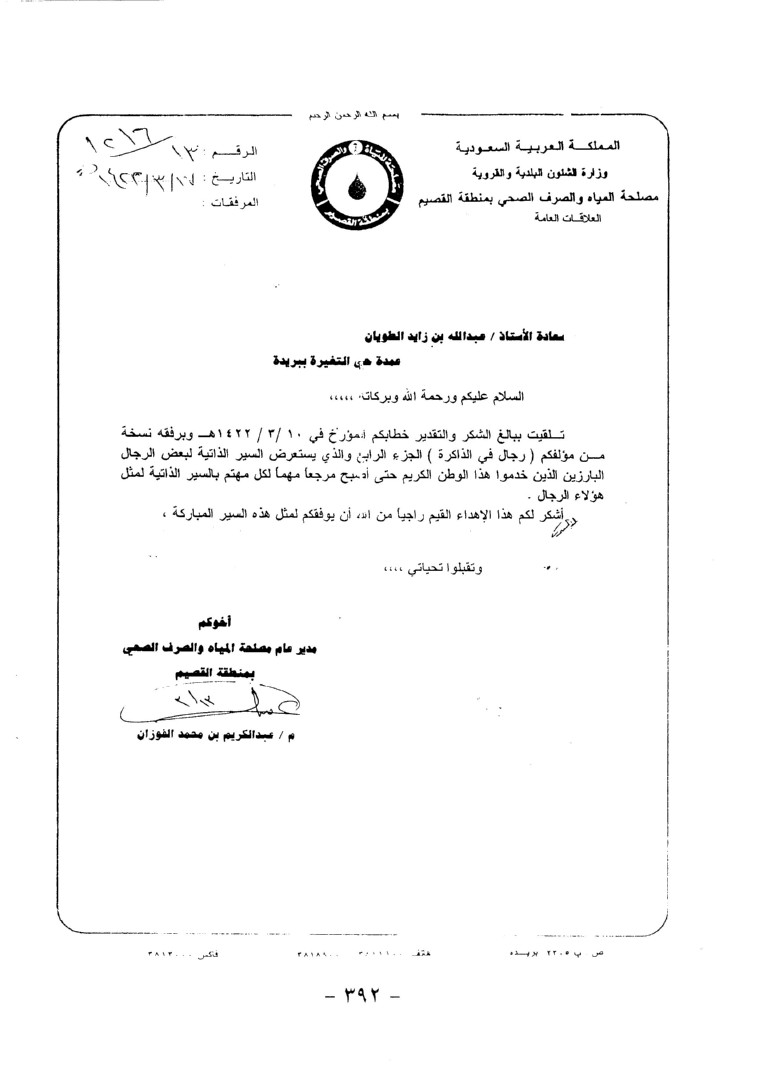 بسم الله الرحمن الرحيم
المملكة العربية السعودية
وزارة الشئون البلدية والقروية
مصلحة المياه والصرف الصحي بمنطقة القصيم
العلاقات العامة
مصلحة المياه والصرف الصحي
بمنطقة القصيم
الرقم : ١٣/
التاريخ :
المرفقات :
سعادة الأستاذ / عبدالله بن زايد الطويان
عمدة حي التغيرة ببريدة
السلام عليكم ورحمة الله وبركاته ،،،،،
تلقيت ببالغ الشكر والتقدير خطابكم المؤرخ في ١٠ /٣ / ١٤٢٢هـ وبرفقه نسخة
من مؤلفكم ( رجال في الذاكرة ) الجزء الرابع والذي يستعرض السير الذاتية لبعض الرجال
البارزين الذين خدموا هذا الوطن الكريم حتى أصبح مرجعاً مهماً لكل مهتم بالسير الذاتية لمثل
هؤلاء الرجال .
أشكر لكم هذا الإهداء القيم راجياً من الله أن يوفقكم لمثل هذه السير المباركة ،
وتقبلوا تحياتي ،،،،
أخوكم
مدير عام مصلحة المياه والصرف الصحي
بمنطقة القصيم
م / عبدالكريم بن محمد الفوزان
ص ب ٢٢٠٥ بريده هاتف ٣٨١٨٩٠٠ فاكس ٣٨١٣٠٠٠
- ٣٩٢ -